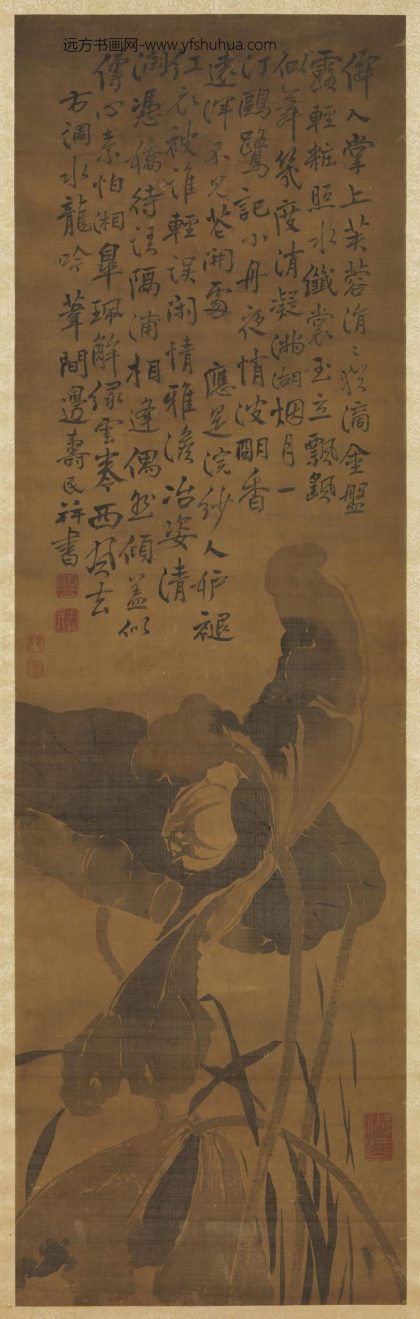 远方书画网-www.yfshuhua.com
僊人掌上芙蓉涓〻猶滴金盤
露輕粧照水纖裳玉立飄飖
似舞幾度消凝滿湖烟月一
汀鷗鷺記小舟夜悄波明香
遠渾不見花開處 應是浣紗人妒褪
紅衣被誰輕誤閒情雅澹冶姿清
潤憑嬌待語隔浦相逢偶然傾蓋似
傳心素怕湘皋珮解綠雲卷西風去
古調水龍吟 葦間邊壽民并書